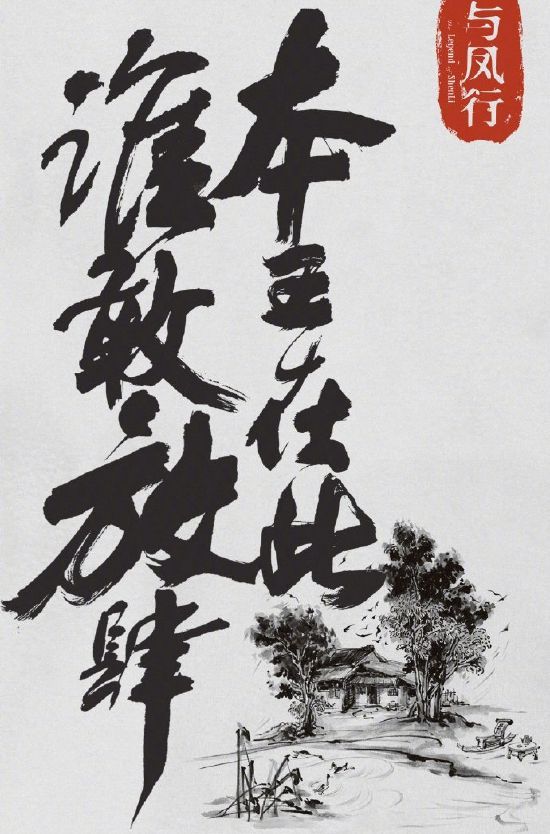 本王在此
谁敢放肆
与凤行
The Legend of ShenLi